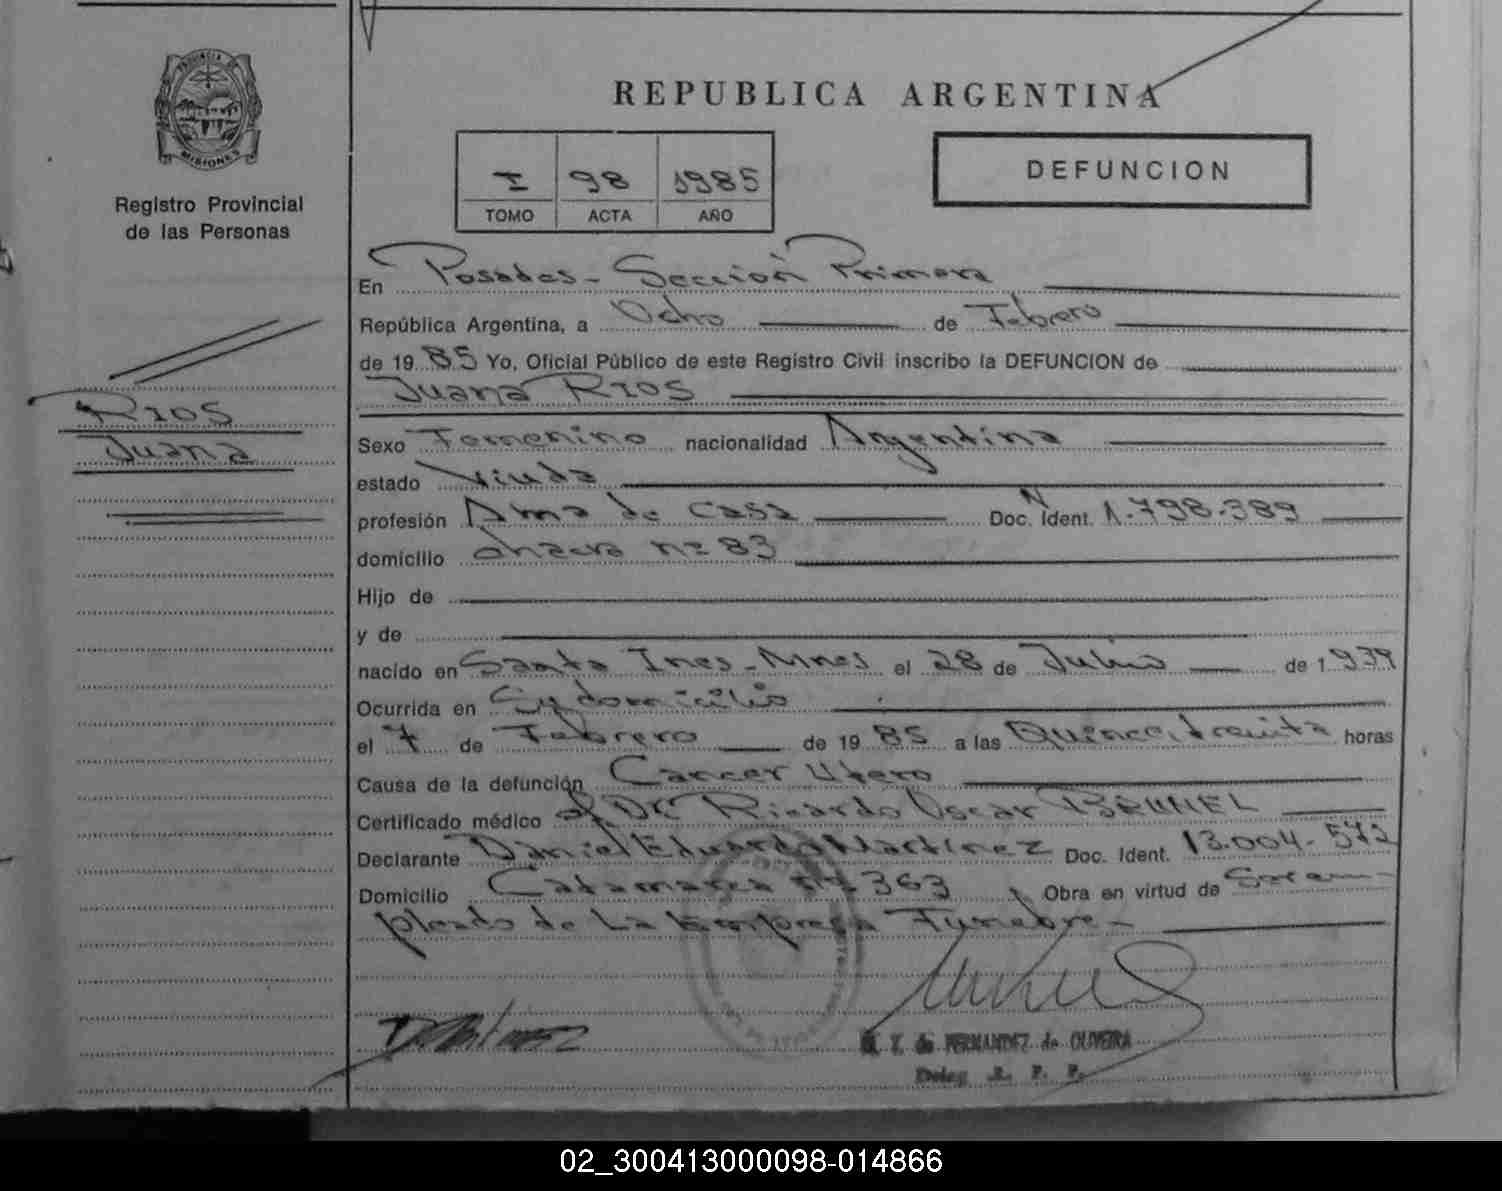 PROVINCIA DE
MISIONES
Registro Provincial
de las Personas
RIOS
Juana
REPUBLICA ARGENTINA
I 98 1985
TOMO ACTA AÑO
DEFUNCION
En Posadas - Sección Primera
República Argentina, a Ocho de Febrero
de 19 85 Yo, Oficial Público de este Registro Civil inscribo la DEFUNCION de
Juana RIOS
Sexo Femenino nacionalidad Argentina
estado Viuda
profesión Ama de casa Doc. N Ident. 1.798.389
domicilio chacra nº 83
Hijo de
y de
nacido en Santa Ines - Mnes el 28 de Julio de 1.939
Ocurrida en S/domicilio
el 7 de Febrero de 19 85 a las Quince, treinta horas
Causa de la defunción Cancer Utero
Certificado médico Dr. Ricardo Oscar BRUNEL
Declarante Daniel Eduardo Martinez Doc. Ident. 13.004.572
Domicilio Catamarca nº 363 Obra en virtud de Ser em-
pleado de La Empresa Funebre -
M. Y. de FERNANDEZ de OLIVEIRA
Deleg. R. P. P.
02_300413000098-014866